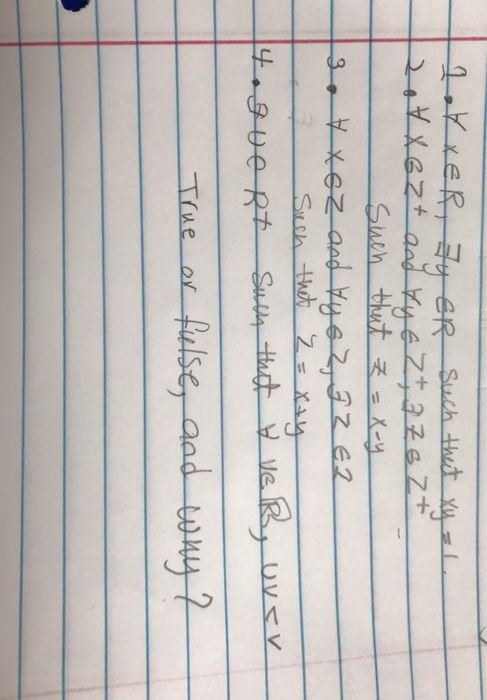 1. ∀ x ∈ R, ∃y ∈ R such that xy = 1.
2. ∀ x ∈ Z+ and ∀y ∈ Z+, ∃ z ∈ Z+
Such that z = x-y
3. ∀ x ∈ Z and ∀y ∈ Z, ∃ z ∈ Z
Such that z = x+y
4. ∃ u ∈ R+ Such that ∀ v ∈ R, uv < v
True or false, and why?